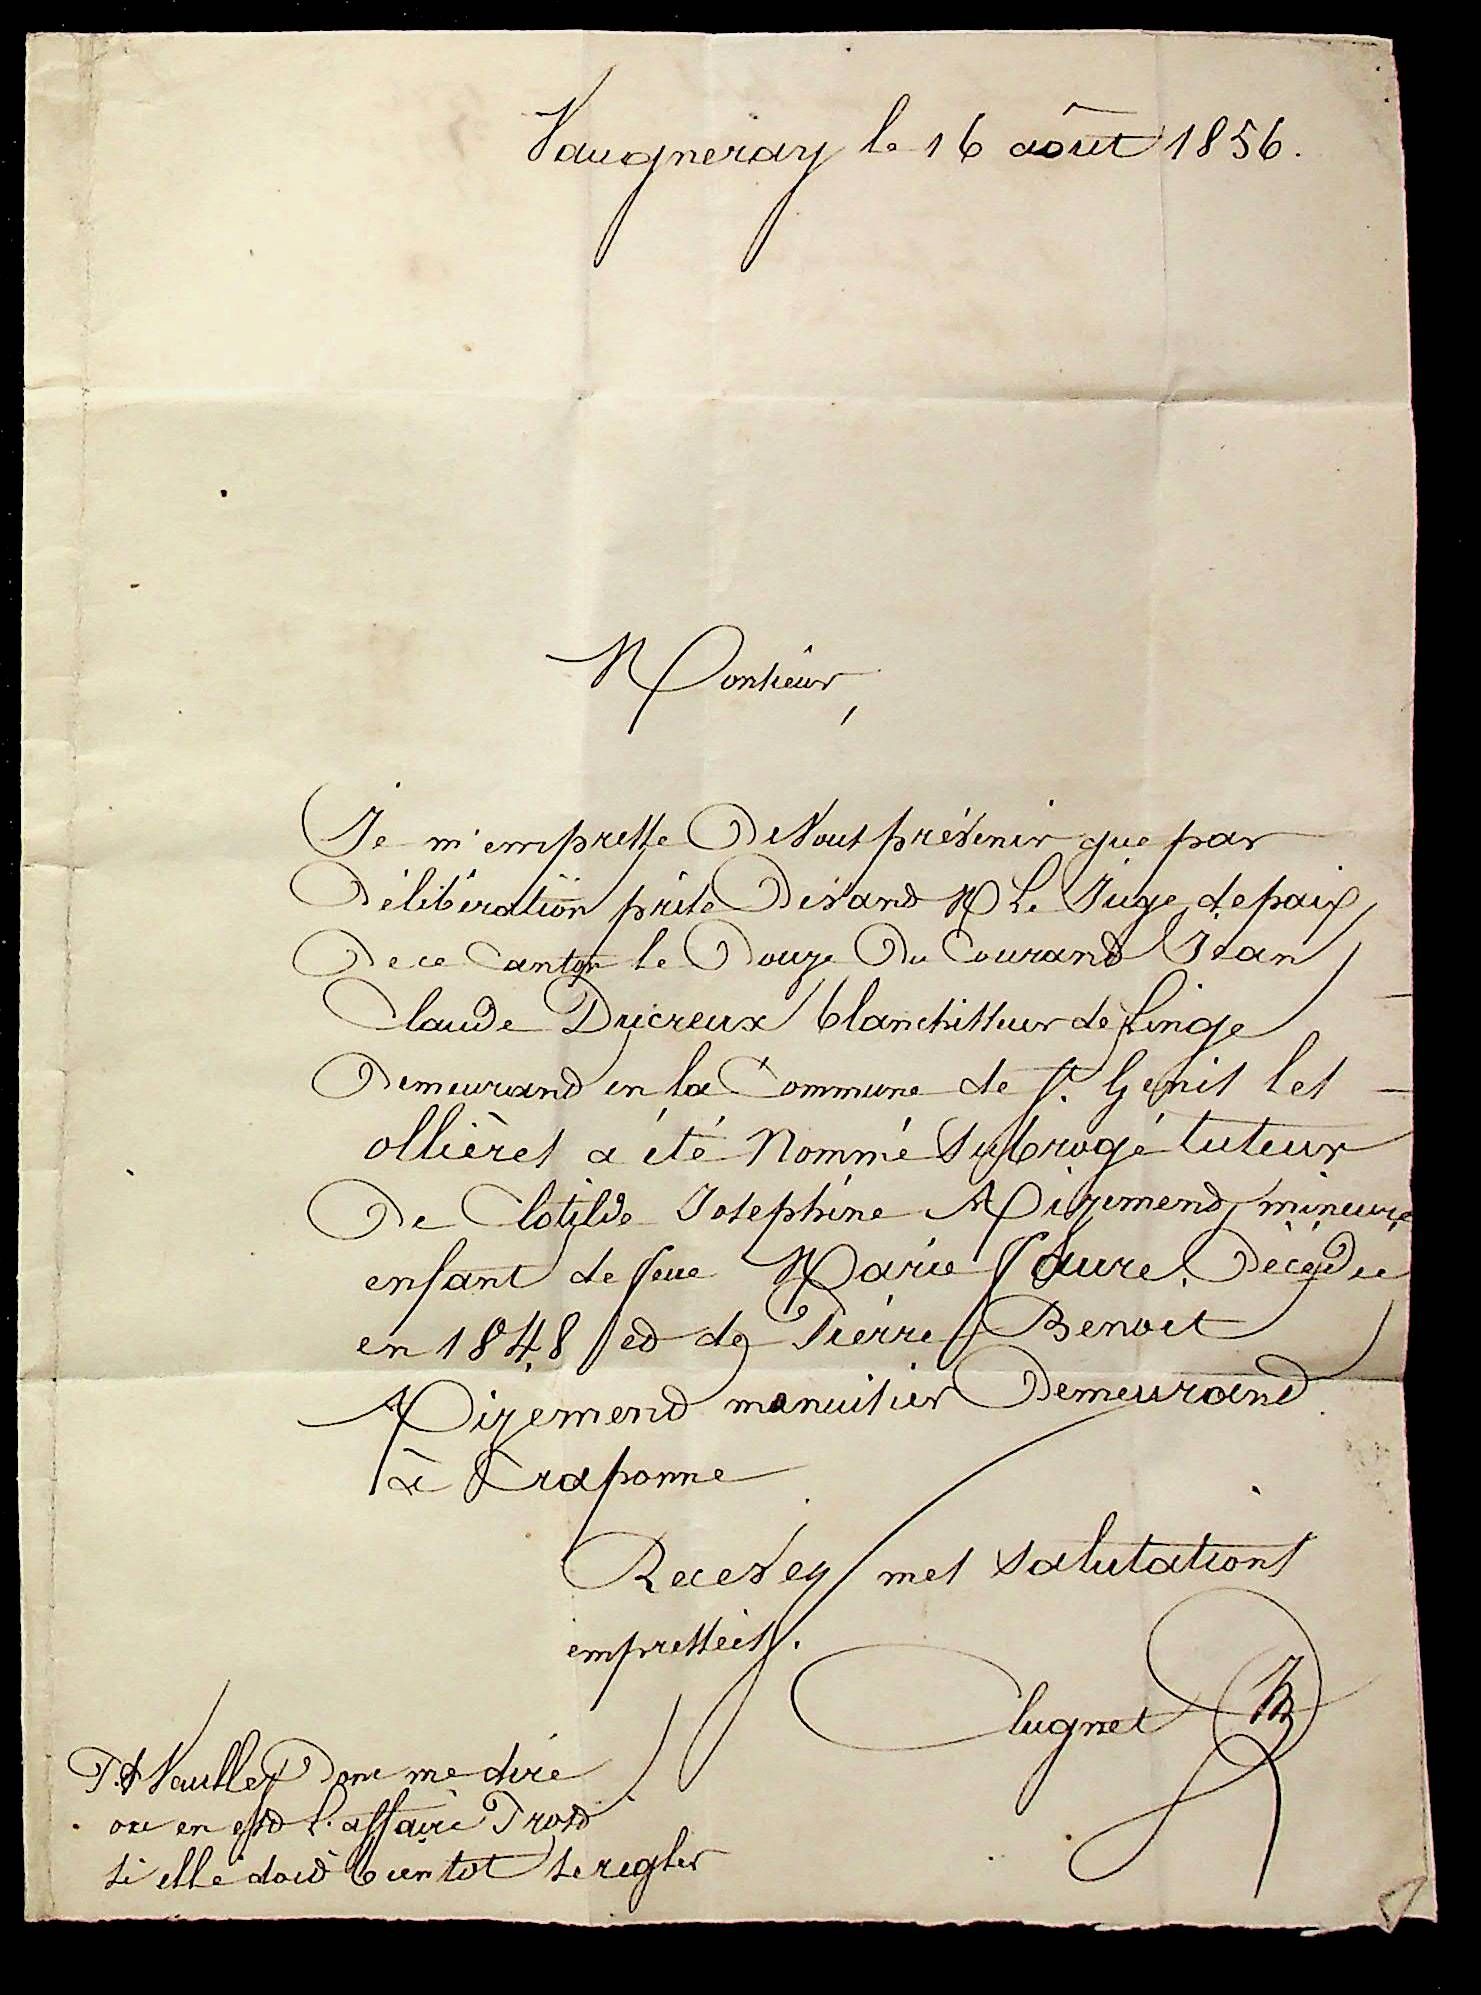 Vaugneray le 16 août 1856.
Monsieur,
Je m'empresse De Vous prévenir que par
Délibération prise Devand M Le Juge de paix
De ce Canton le Douze Du Courand Jean
Claude Ducreux blanchisseur de Linge
Demeurand en la Commune de St. Genis les
ollières a été Nommé Subrogé tuteur
De Clotilde Josephine Mizemend, mineure
enfant de feue Marie Faure, Décédée
en 1848 ed de Pierre Benoit
Mizemend menuisier Demeurand
à Craponne
Recevez mes salutations
empressées.
Clugnet
P.S Veuillez Donc me dire
ou en esd l'affaire Trosd
si elle doid bientot se regler